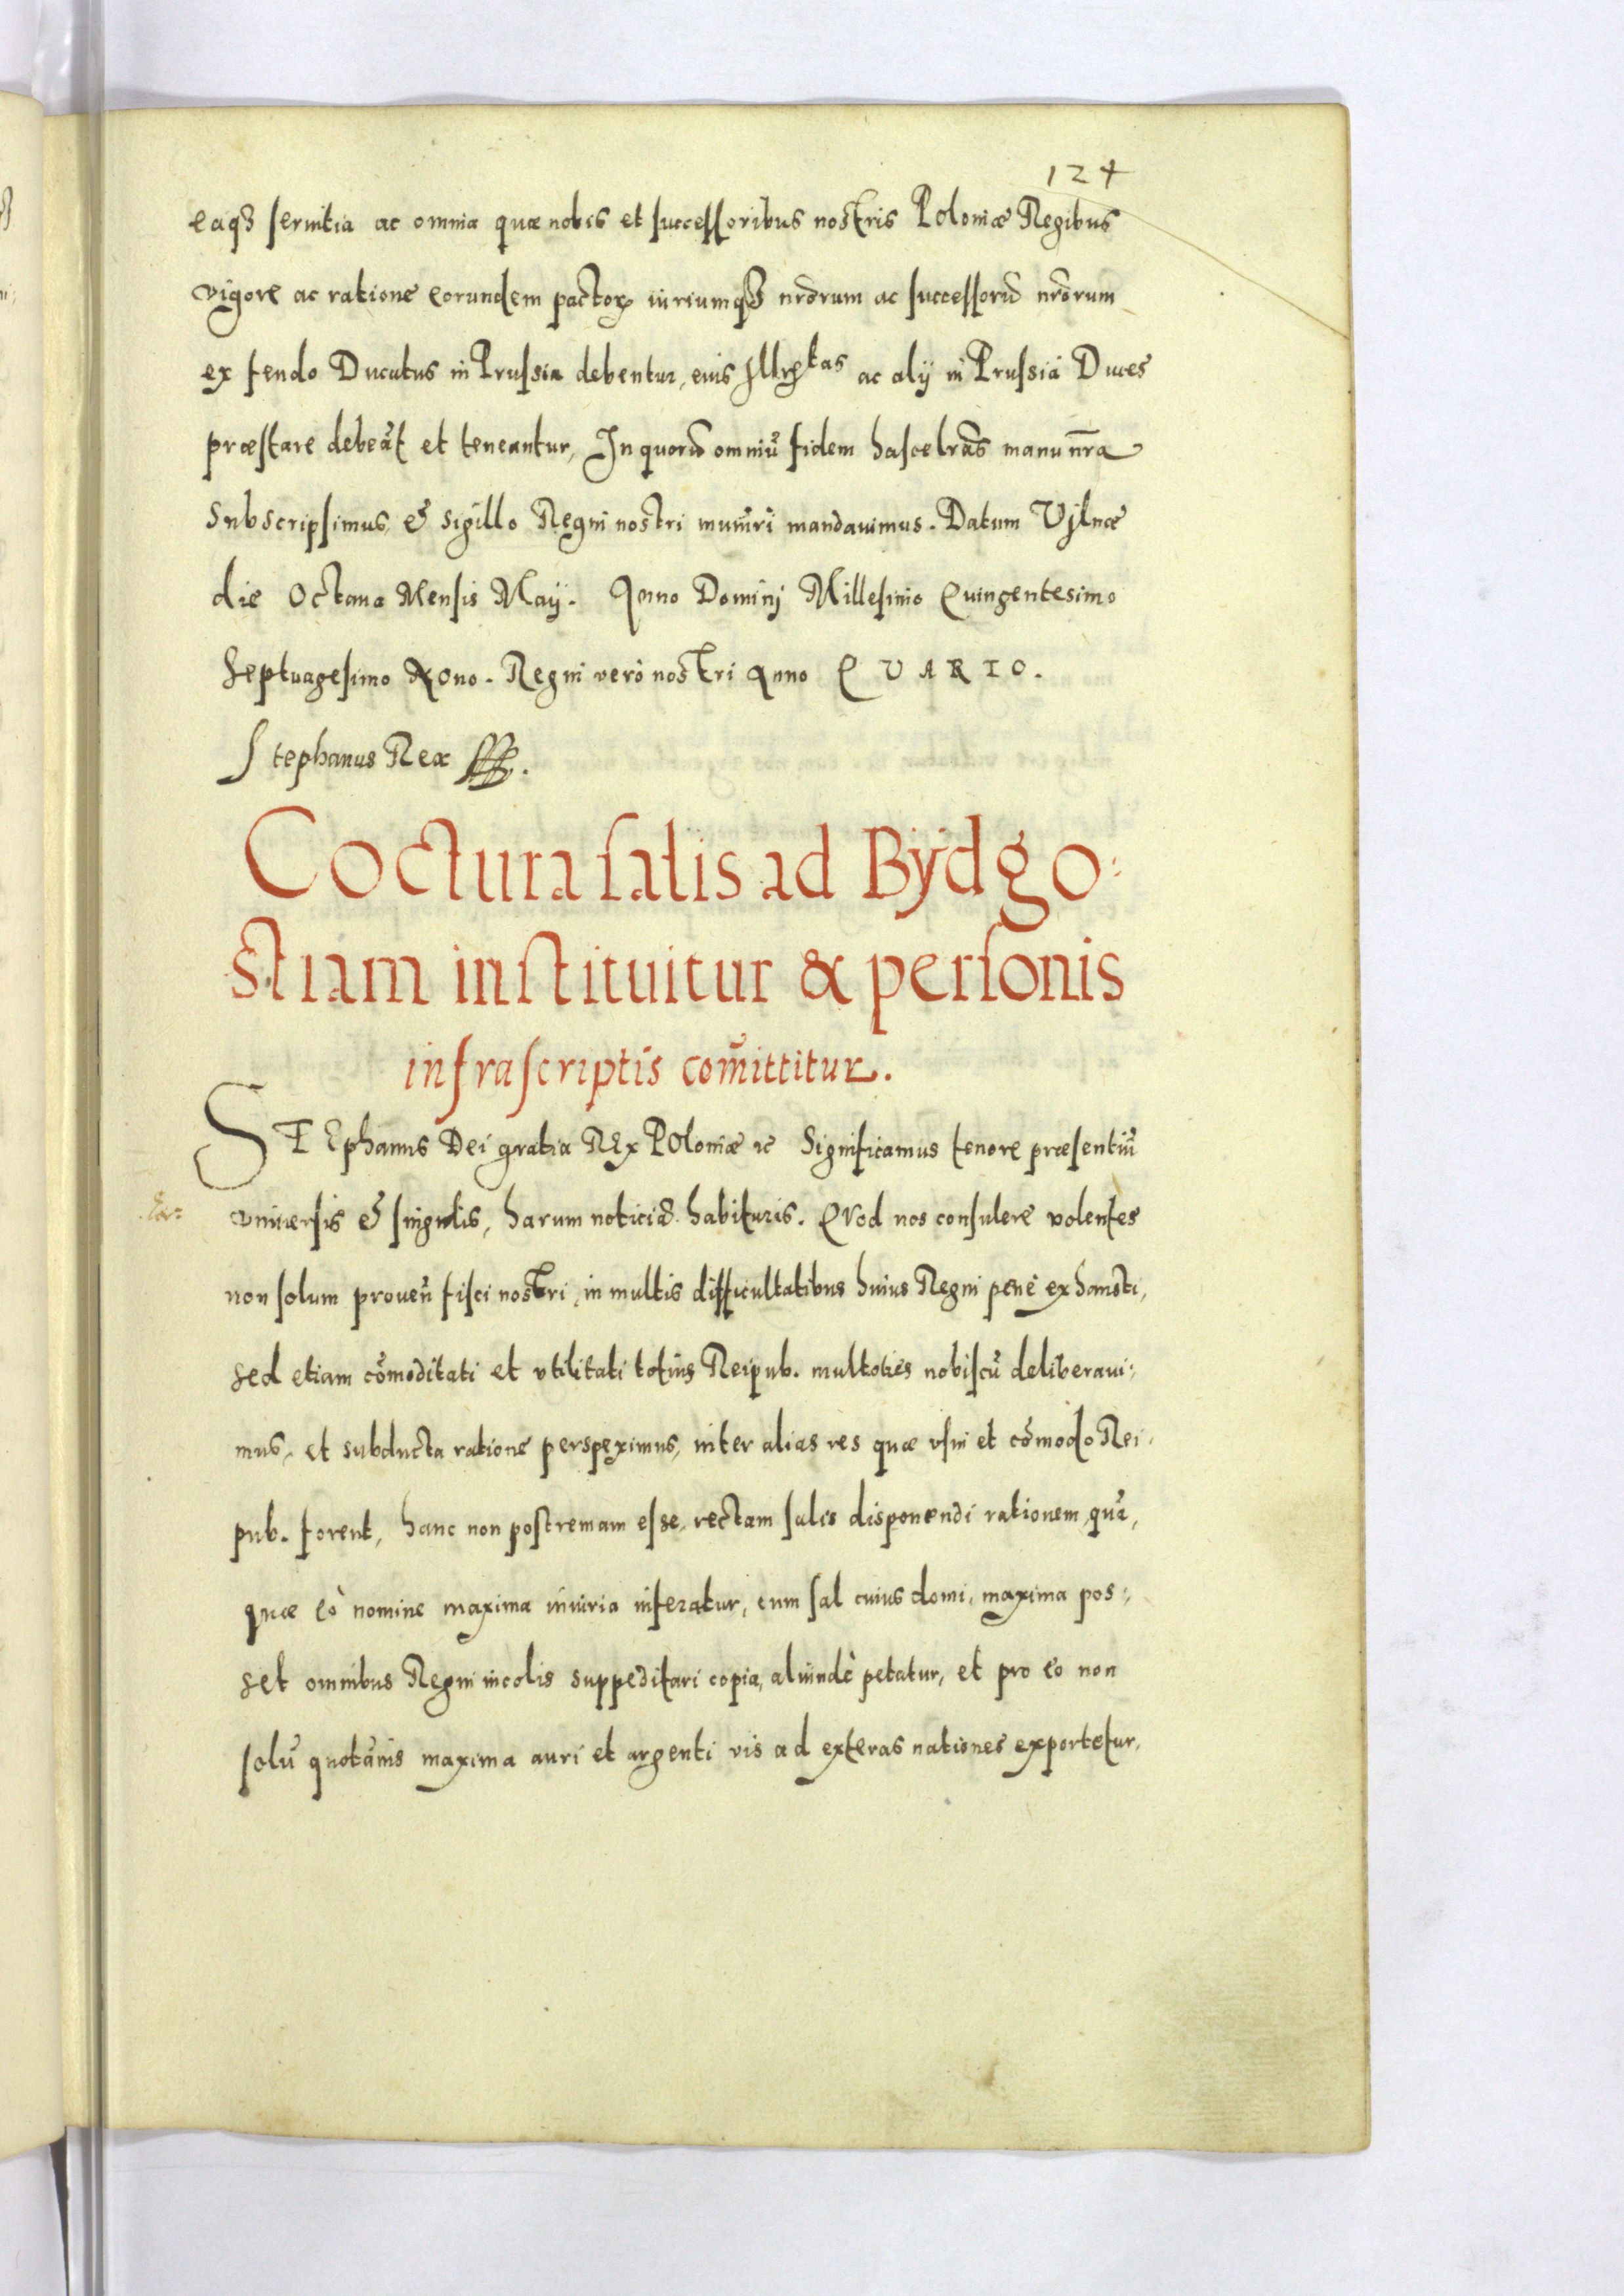 124
eaqꝫ seruitia ac omnia quæ nobis et successoribus nostris Poloniæ Regibus
vigore ac ratione eorundem pactoꝝ iuriumqꝫ nr̄orum ac successorũ nr̄orum
ex feudo Ducatus in Prussia debentur, eius Illr̃tas ac alij in Prussia Duces
præstare debeãt et teneantur, In quorũ omniũ fidem hasce lr̃as manu nr̄a
subscripsimus, & sigillo Regni nostri muniri mandauimus. Datum Vilnæ
die Octaua Mensis Maij. Anno Dominj Millesimo Quingentesimo
septuagesimo Nono. Regni verò nostri Anno QVARTO.
Stephanus Rex
Coctura salis ad Bÿdgo:
stiam instituitur & personis
infrascriptis com̃ittitur.
STEphanus Dei gratia REx POloniæ ꝛc Significamus tenore præsentiũ
vniuersis & singulis, harum noticiã habituris. QVod nos consulere volentes
non solum prouen̄ fisci nostri, in multis difficultatibus huius Regni penè exhausti,
sed etiam cõmoditati et vtilitati totius Reipub. multoties nobiscũ deliberaui:
mus, et subducta ratione perspeximus, inter alias res quæ vsui et cõmodo Rei:
pub. forent, hanc non postremam esse, rectam salis disponendi rationem, quã,
quæ eò nomine maxima iniuria inferatur, cum sal cuius domi, maxima pos:
set omnibus Regni incolis suppeditari copia, aliundè petatur, et pro eo non
solũ quotãnis maxima auri et argenti vis ad exteras nationes exportetur,